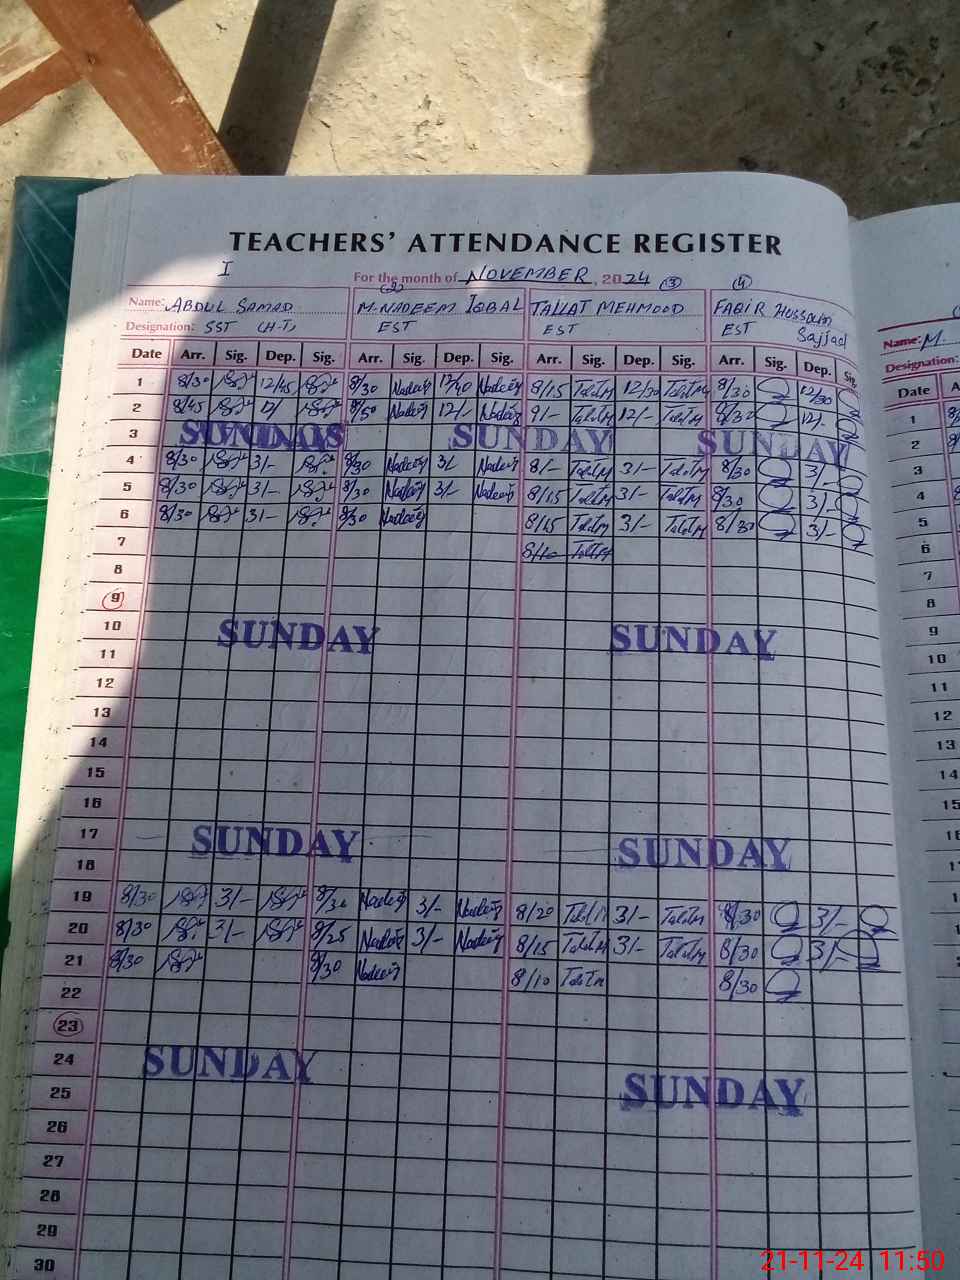 TEACHERS' ATTENDANCE REGISTER
I For the month of NOVEMBER, 2024
(2) (3) (4)
Name: ABDUL SAMAD M. NADEEM IQBAL TALLAT MEHMOOD FAQIR HUSSAIN Sajjad
Designation: SST (H-T) EST EST EST
Name: M.
Designation:
Date Arr. Sig. Dep. Sig. Arr. Sig. Dep. Sig. Arr. Sig. Dep. Sig. Arr. Sig. Dep. Sig.
Date
1 8/30 12/45 8/30 Nadeem 12/40 Nadeem 8/15 TalatM 12/30 TalatM 8/30 12/30
2 8/45 12/ 8/50 Nadeem 12/- Nadeem 9/- TalatM 12/- TalatM 8/30 12/-
3 SUNDAY SUNDAY SUNDAY
4 8/30 3/- 8/30 Nadeem 3/ Nadeem 8/- TalatM 3/- TalatM 8/30 3/-
5 8/30 3/- 8/30 Nadeem 3/- Nadeem 8/15 TalatM 3/- TalatM 8/30 3/-
6 8/30 3/- 8/30 Nadeem 8/15 TalatM 3/- TalatM 8/30 3/-
7 8/10 TalatM
8
9
10 SUNDAY SUNDAY
11
12
13
14
15
16
17 SUNDAY SUNDAY
18
19 8/30 3/- 8/30 Nadeem 3/- Nadeem 8/20 TalatM 3/- TalatM 8/30 3/-
20 8/30 3/- 8/25 Nadeem 3/- Nadeem 8/15 TalatM 3/- TalatM 8/30 3/-
21 8/30 8/30 Nadeem 8/10 TalatM 8/30
22
23
24 SUNDAY SUNDAY
25
26
27
28
29
30
1
2
3
4
5
6
7
8
9
10
11
12
13
14
15
16
17
18
19
21-11-24 11:50